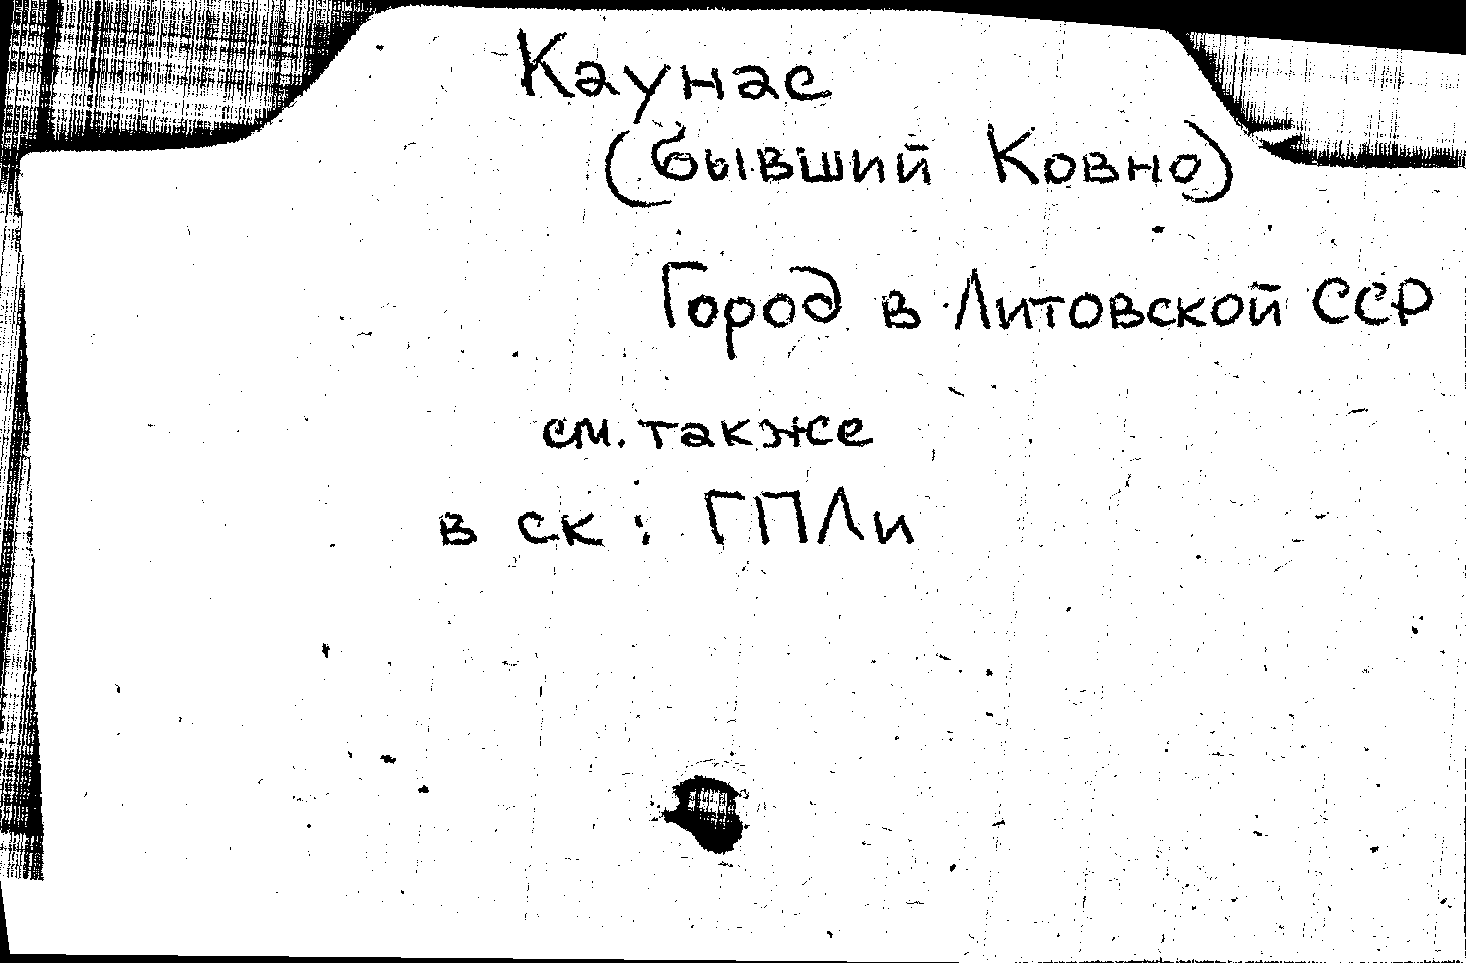 Каунас
(бывший Ковно)
Город в Литовской ССР
см. также
в ск: ГПЛи